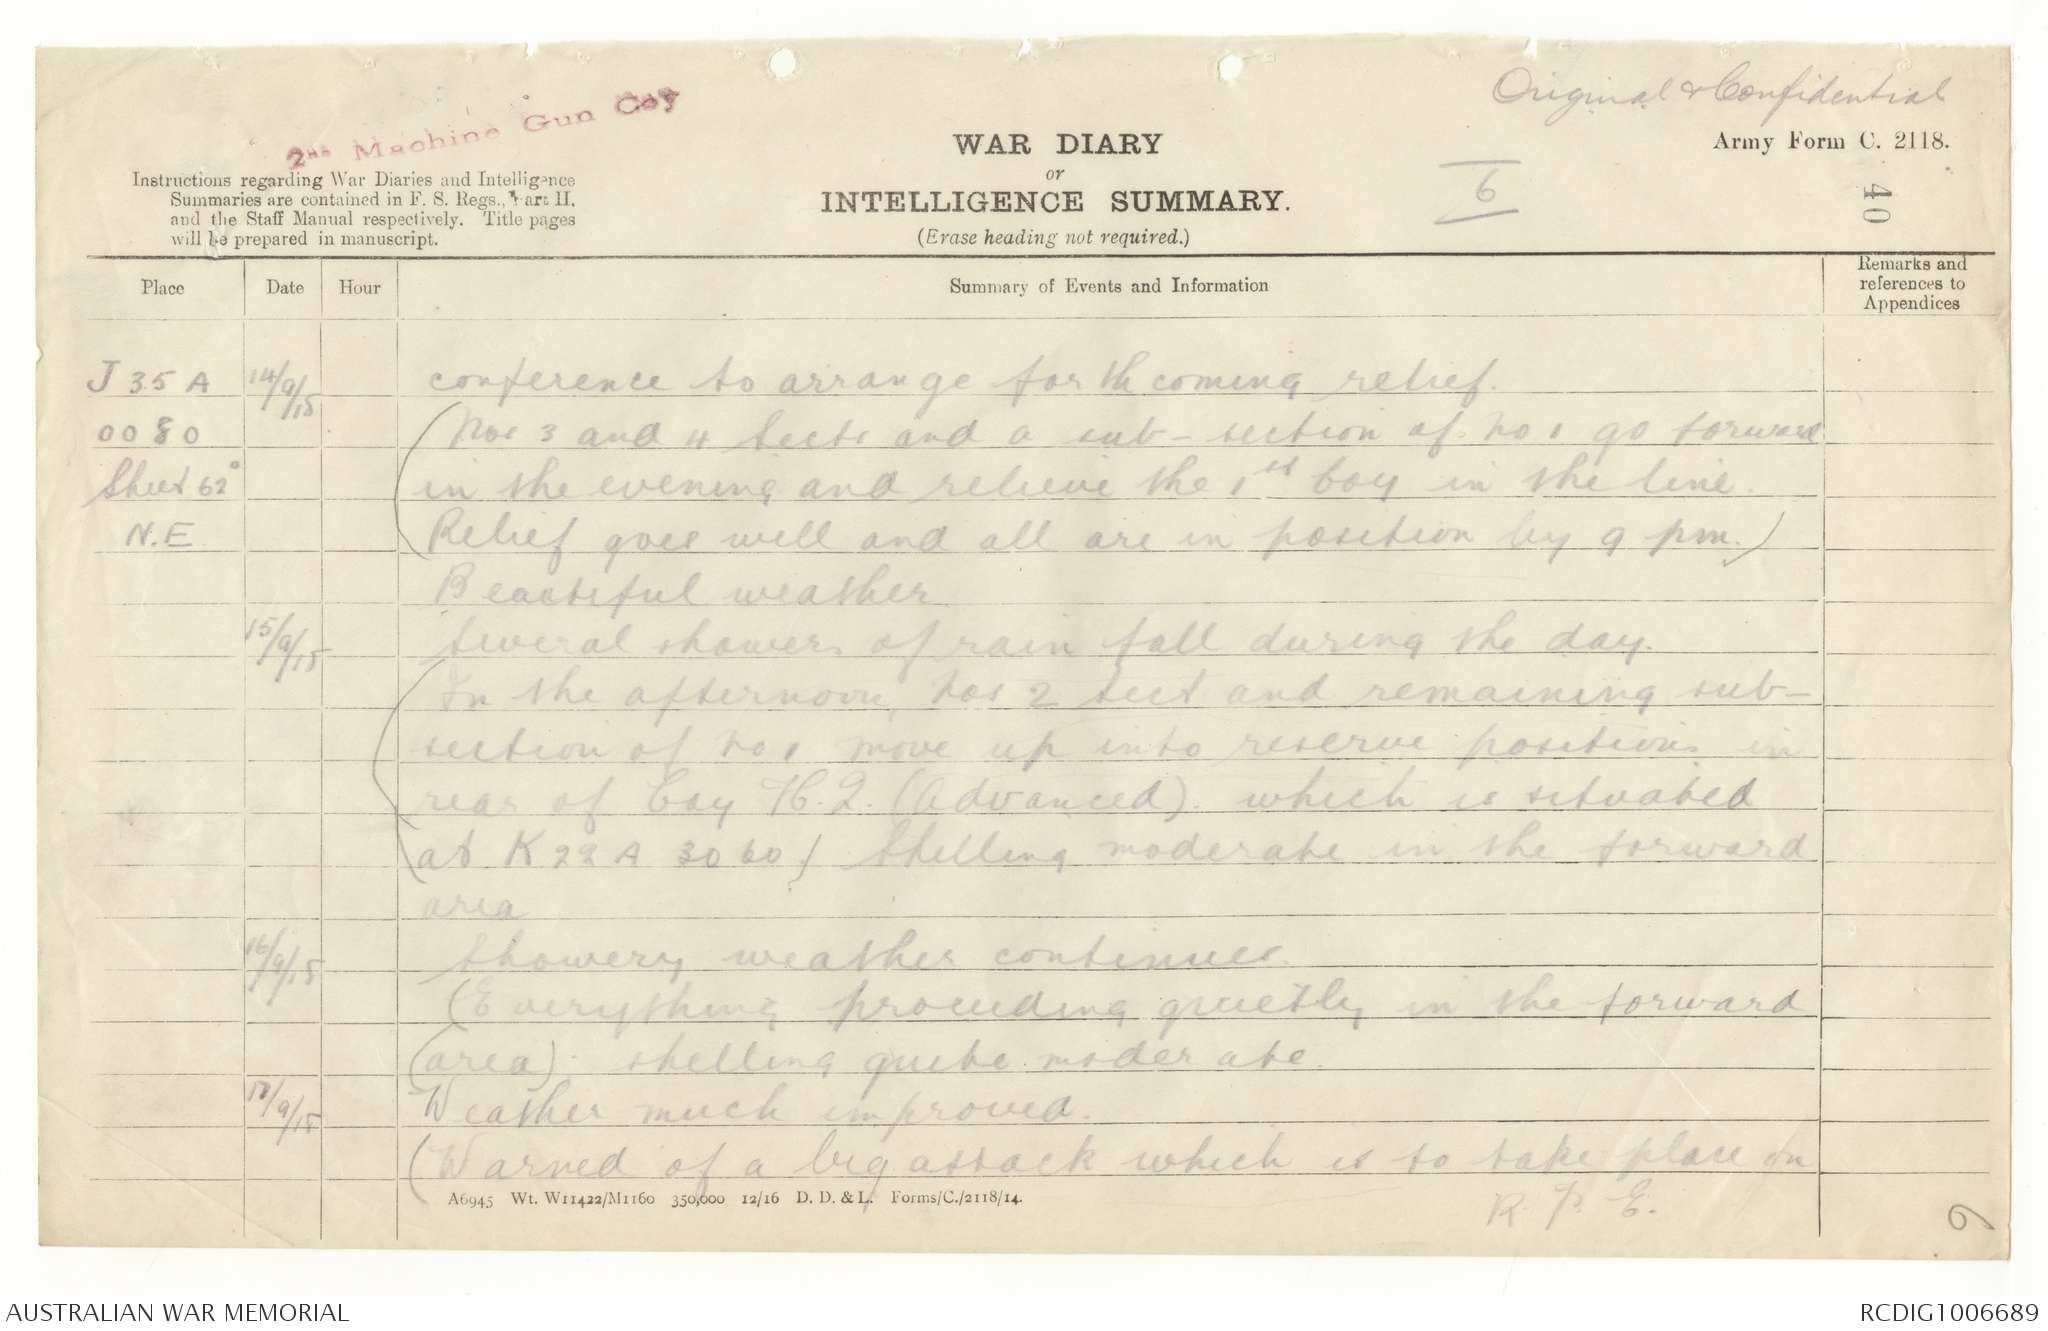 Original & Confidential
2nd Machine Gun Coy
WAR DIARY
or
INTELLIGENCE SUMMARY.
(Erase heading not required.)
Army Form C. 2118.
6
40
Instructions regarding War Diaries and Intelligence
Summaries are contained in F. S. Regs., Part II.
and the Staff Manual respectively. Title pages
will be prepared in manuscript.
Place Date Hour Summary of Events and Information Remarks and references to Appendices
J 35 A 14/9/18 conference to arrange forthcoming relief.
0080 (Nos 3 and 4 Sects and a sub-section of No 1 go forward
Sheet 62c in the evening and relieve the 1st Coy in the line.
N.E Relief goes well and all are in position by 9 pm.)
Beautiful weather
15/9/18 Several showers of rain fall during the day.
(In the afternoon, Nos 2 sect and remaining sub-
section of No 1 move up into reserve positions in
rear of Coy H.Q. (Advanced). which is situated
at K 22 A 3060) Shelling moderate in the forward
area
16/9/18 Showery weather continues.
(Everything proceeding quietly in the forward
(area). shelling quite moderate.
17/9/18 Weather much improved.
(Warned of a big attack which is to take place on
R. P. E.
A6945 Wt. W11422/M1160 350,000 12/16 D. D. & L. Forms/C./2118/14.
9
AUSTRALIAN WAR MEMORIAL
RCDIG1006689